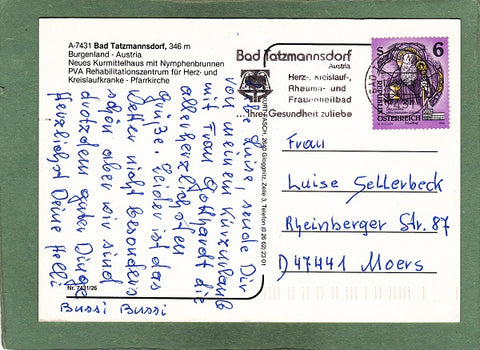 A-7431 Bad Tatzmannsdorf, 346 m
Burgenland - Austria
Neues Kurmittelhaus mit Nymphenbrunnen
PVA Rehabilitationszentrum für Herz- und
Kreislaufkranke · Pfarrkirche
Liebe Luise, sende Dir
von meinem Kurzurlaub
mit Frau Gotthardt die
allerherzlichsten
Grüße. Leider ist das
Wetter nicht besonders
schön aber wir sind
trotzdem guter Dinge
Herzlichst Deine Helli
Bussi Bussi
Nr. 7431/26
2640 Gloggnitz, Zeile 3, Telefon (0 26 62) 22 01
Bad Tatzmannsdorf
Austria
Herz-, Kreislauf-,
Rheuma- und
Frauenheilbad
...Ihrer Gesundheit zuliebe
S 6
REPUBLIK
ÖSTERREICH
Frau
Luise Sellerbeck
Rheinberger Str. 87
D 47441 Moers